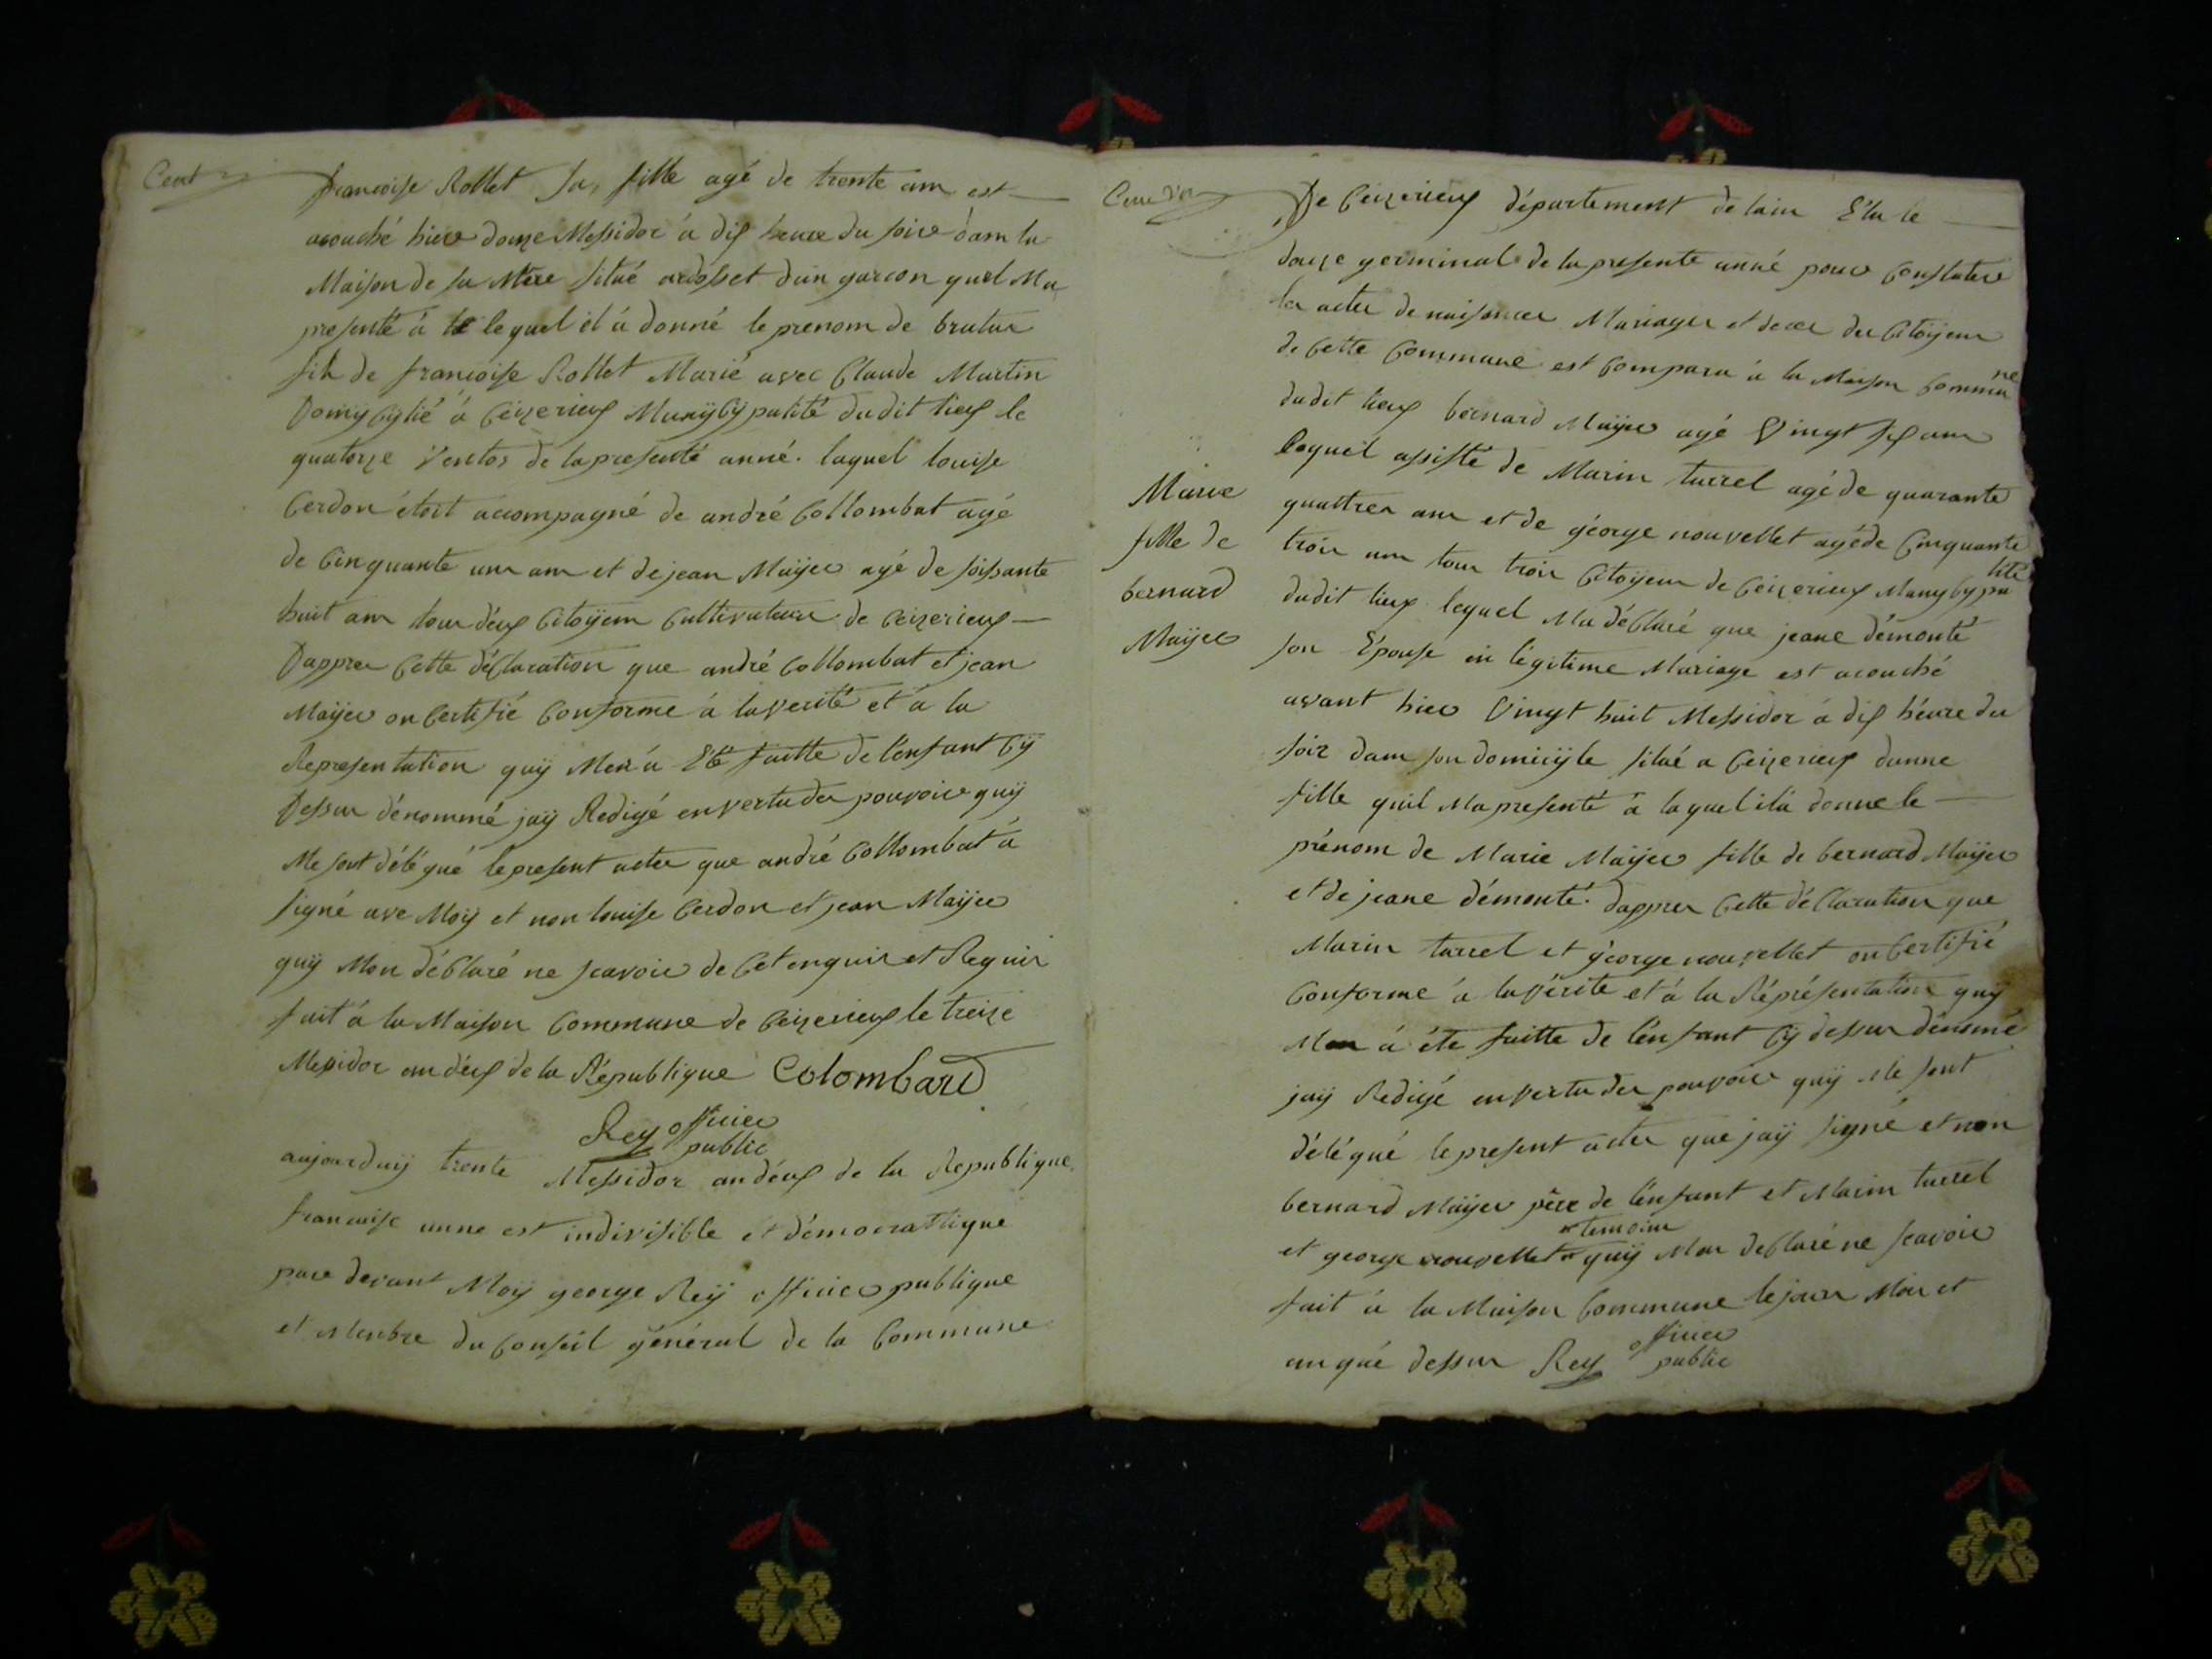 Cent
francoise Rollet Sa fille agé de trente ans est
acouché hier douze Messidor à dix heure du soire dans la
Maison de sa Mere situé ardosset dun garcon quel Ma
presenté à lequel él à donné le prenom de brutus
fils de francoise Rollet Marié avec Claude Martin
Domycylié à Ceizerieux Munycypalité dudit lieux le
quatorze Ventos de la presente anné. laquel louise
Cerdon étoit acompagné de andré Collombat agé
de Cinquante uns ans et de jean Mayer agé de soissante
huit ans tous déux Citoyens Cultivateurs de Ceizerieux
Dappres Cette déClaration que andré Collombat et jean
Mayer on Certifié Conforme à la verité et à la
Representation quy Men à Eté faitte de l'enfant Cy
Dessus dénommé jay Redigé en vertu des pouvoirs quy
Me sont délégué le present actes que andré Collombat à
signé ave Moy et non louise Cerdon et jean Mayer
quy Mon déClaré ne scavoir de Cet enquis et Requis
fait à la Maison Commune de Ceizerieux le treize
Messidor an déux de la République Colombard
Rey officier
public
aujourduy trente Messidor an déux de la Republique
francaise unne est indivisible et démocrattique
pare devant Moy george Rey officier publique
et Membre du Conseil général de la Commune
De Ceizerieux département de lain Elu le
douze germinal de la presente anné pour Constater
les actes de naissances Mariages et deces des Citoyens
de Cette Commune est Comparu à la Maison Commune
dudit lieux bernard Mayer agé Vingt six ans
lequel assisté de Marin turrel agé de quarante
quattres ans et de george nouvellet agé de Cinquante
trois ans tous trois Citoyens de Ceizerieux Munycypalité
dudit lieux lequel Ma déClaré que jeane démonté
son Epouse en légitime Mariage est acouché
avant hier Vingt huit Messidor à dix héure du
soir dans son domicyle situé a Ceizerieux dunne
fille quil Ma presenté à laquel il à donne le
prénom de Marie Mayer fille de bernard Mayer
et de jeane démonté. dappres Cette déClaration que
Marin turrel et george nouvellet on Certifié
Conforme à la vérité et à la Réprésentation quy
Men à éte faitte de l'enfant Cy dessus dénomé
jay Redigé en vertu des pouvoirs quy Me sont
délégué le present actes que jay signé et non
bernard Mayer père de l'enfant et Marin turrel
et george nouvellet temoins quy Mon deClaré ne scavoir
fait à la Maison Commune le jours Mois et
an qué dessus Rey officier
public
Marie
fille de
bernard
Mayer